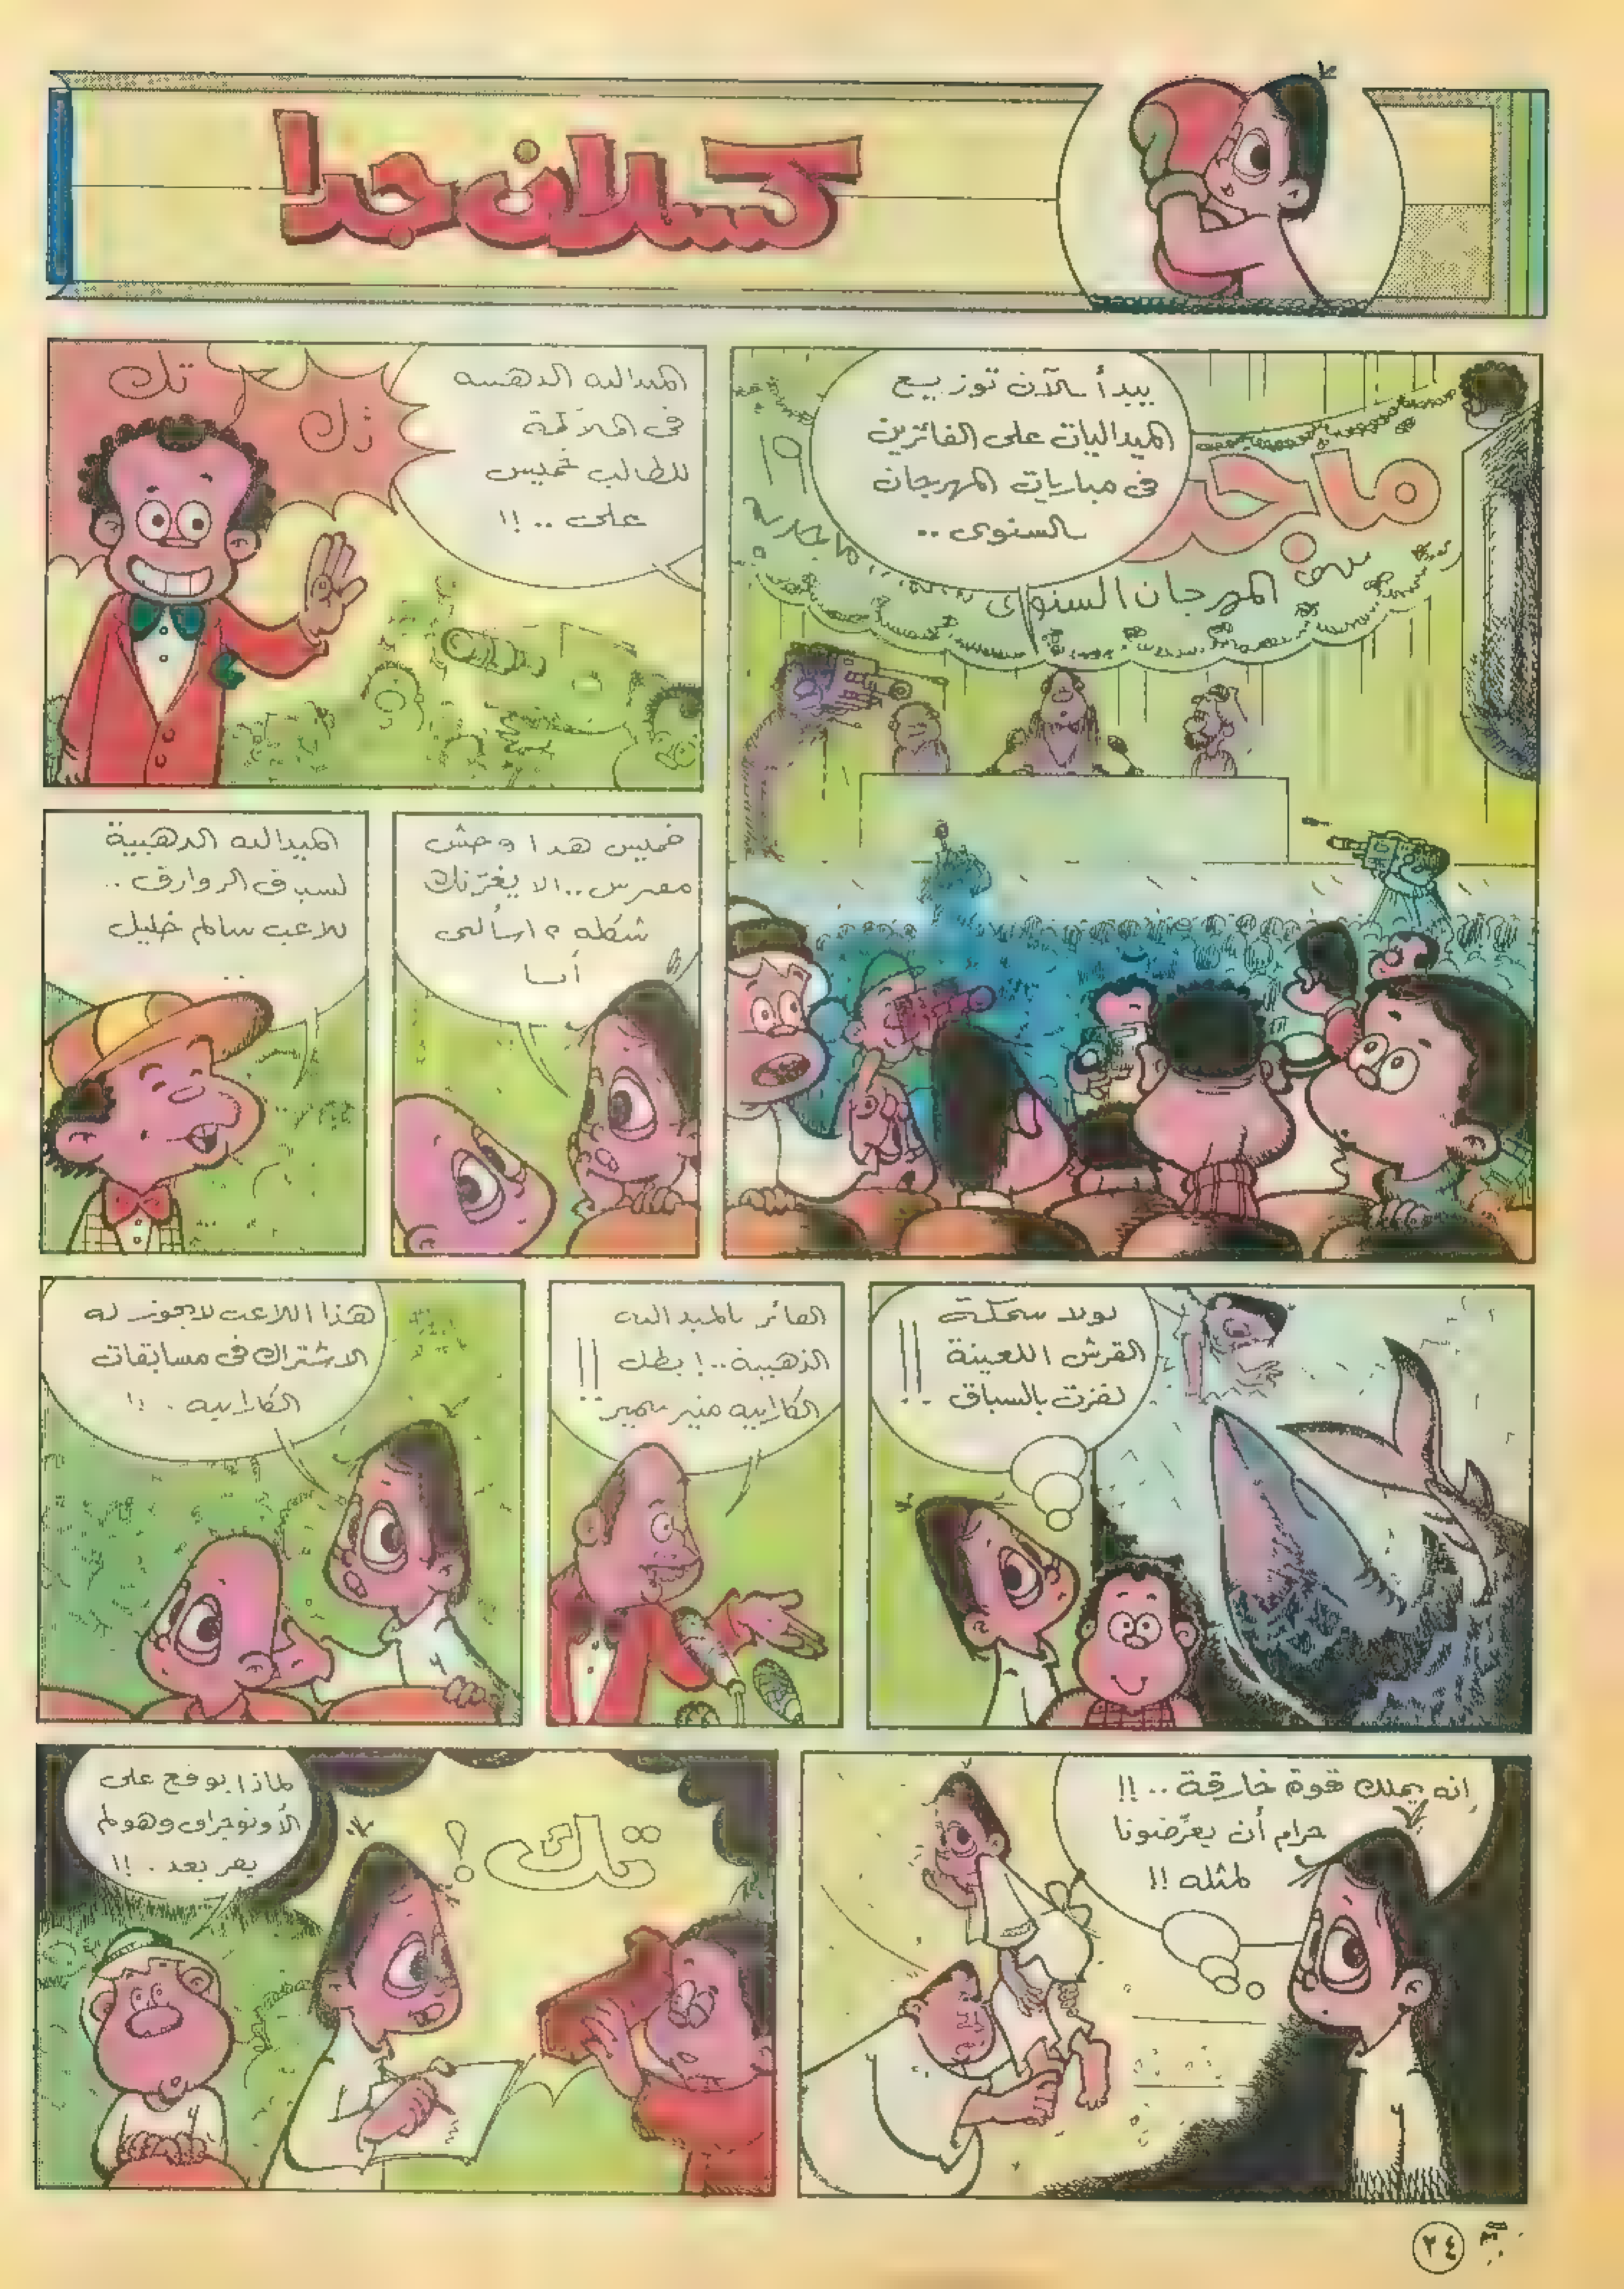 كسلان جدا
يبدأ الآن توزيع
الميداليات على الفائزين
فى مباريات المهرجان
السنوى ..
ماجد
المهرجان السنوى
١٩
الميدالية الذهبية
فى الملاكمة
للطالب خميس
على .. !!
تك
تك
خميس هذا وحش
مفترس .. لا يغرّنك
شكله ، اسألنى
أنا
الميدالية الذهبية
لسباق الزوارق ..
للاعب سالم خليل
..
لولا سمكة
القرش اللعينة
لفزت بالسباق .. !!
الفائز بالميدالية
الذهبية .. ! بطل
الكاراتيه منير سمير .. !!
هذا اللاعب لا يجوز له
الاشتراك فى مسابقات
الكاراتيه . !!
إنه يملك قوة خارقة .. !!
حرام أن يعرّضونا
لمثله !!
تك !
لماذا يوقع على
الأوتوجراف وهو لم
يفز بعد . !!
٢٤